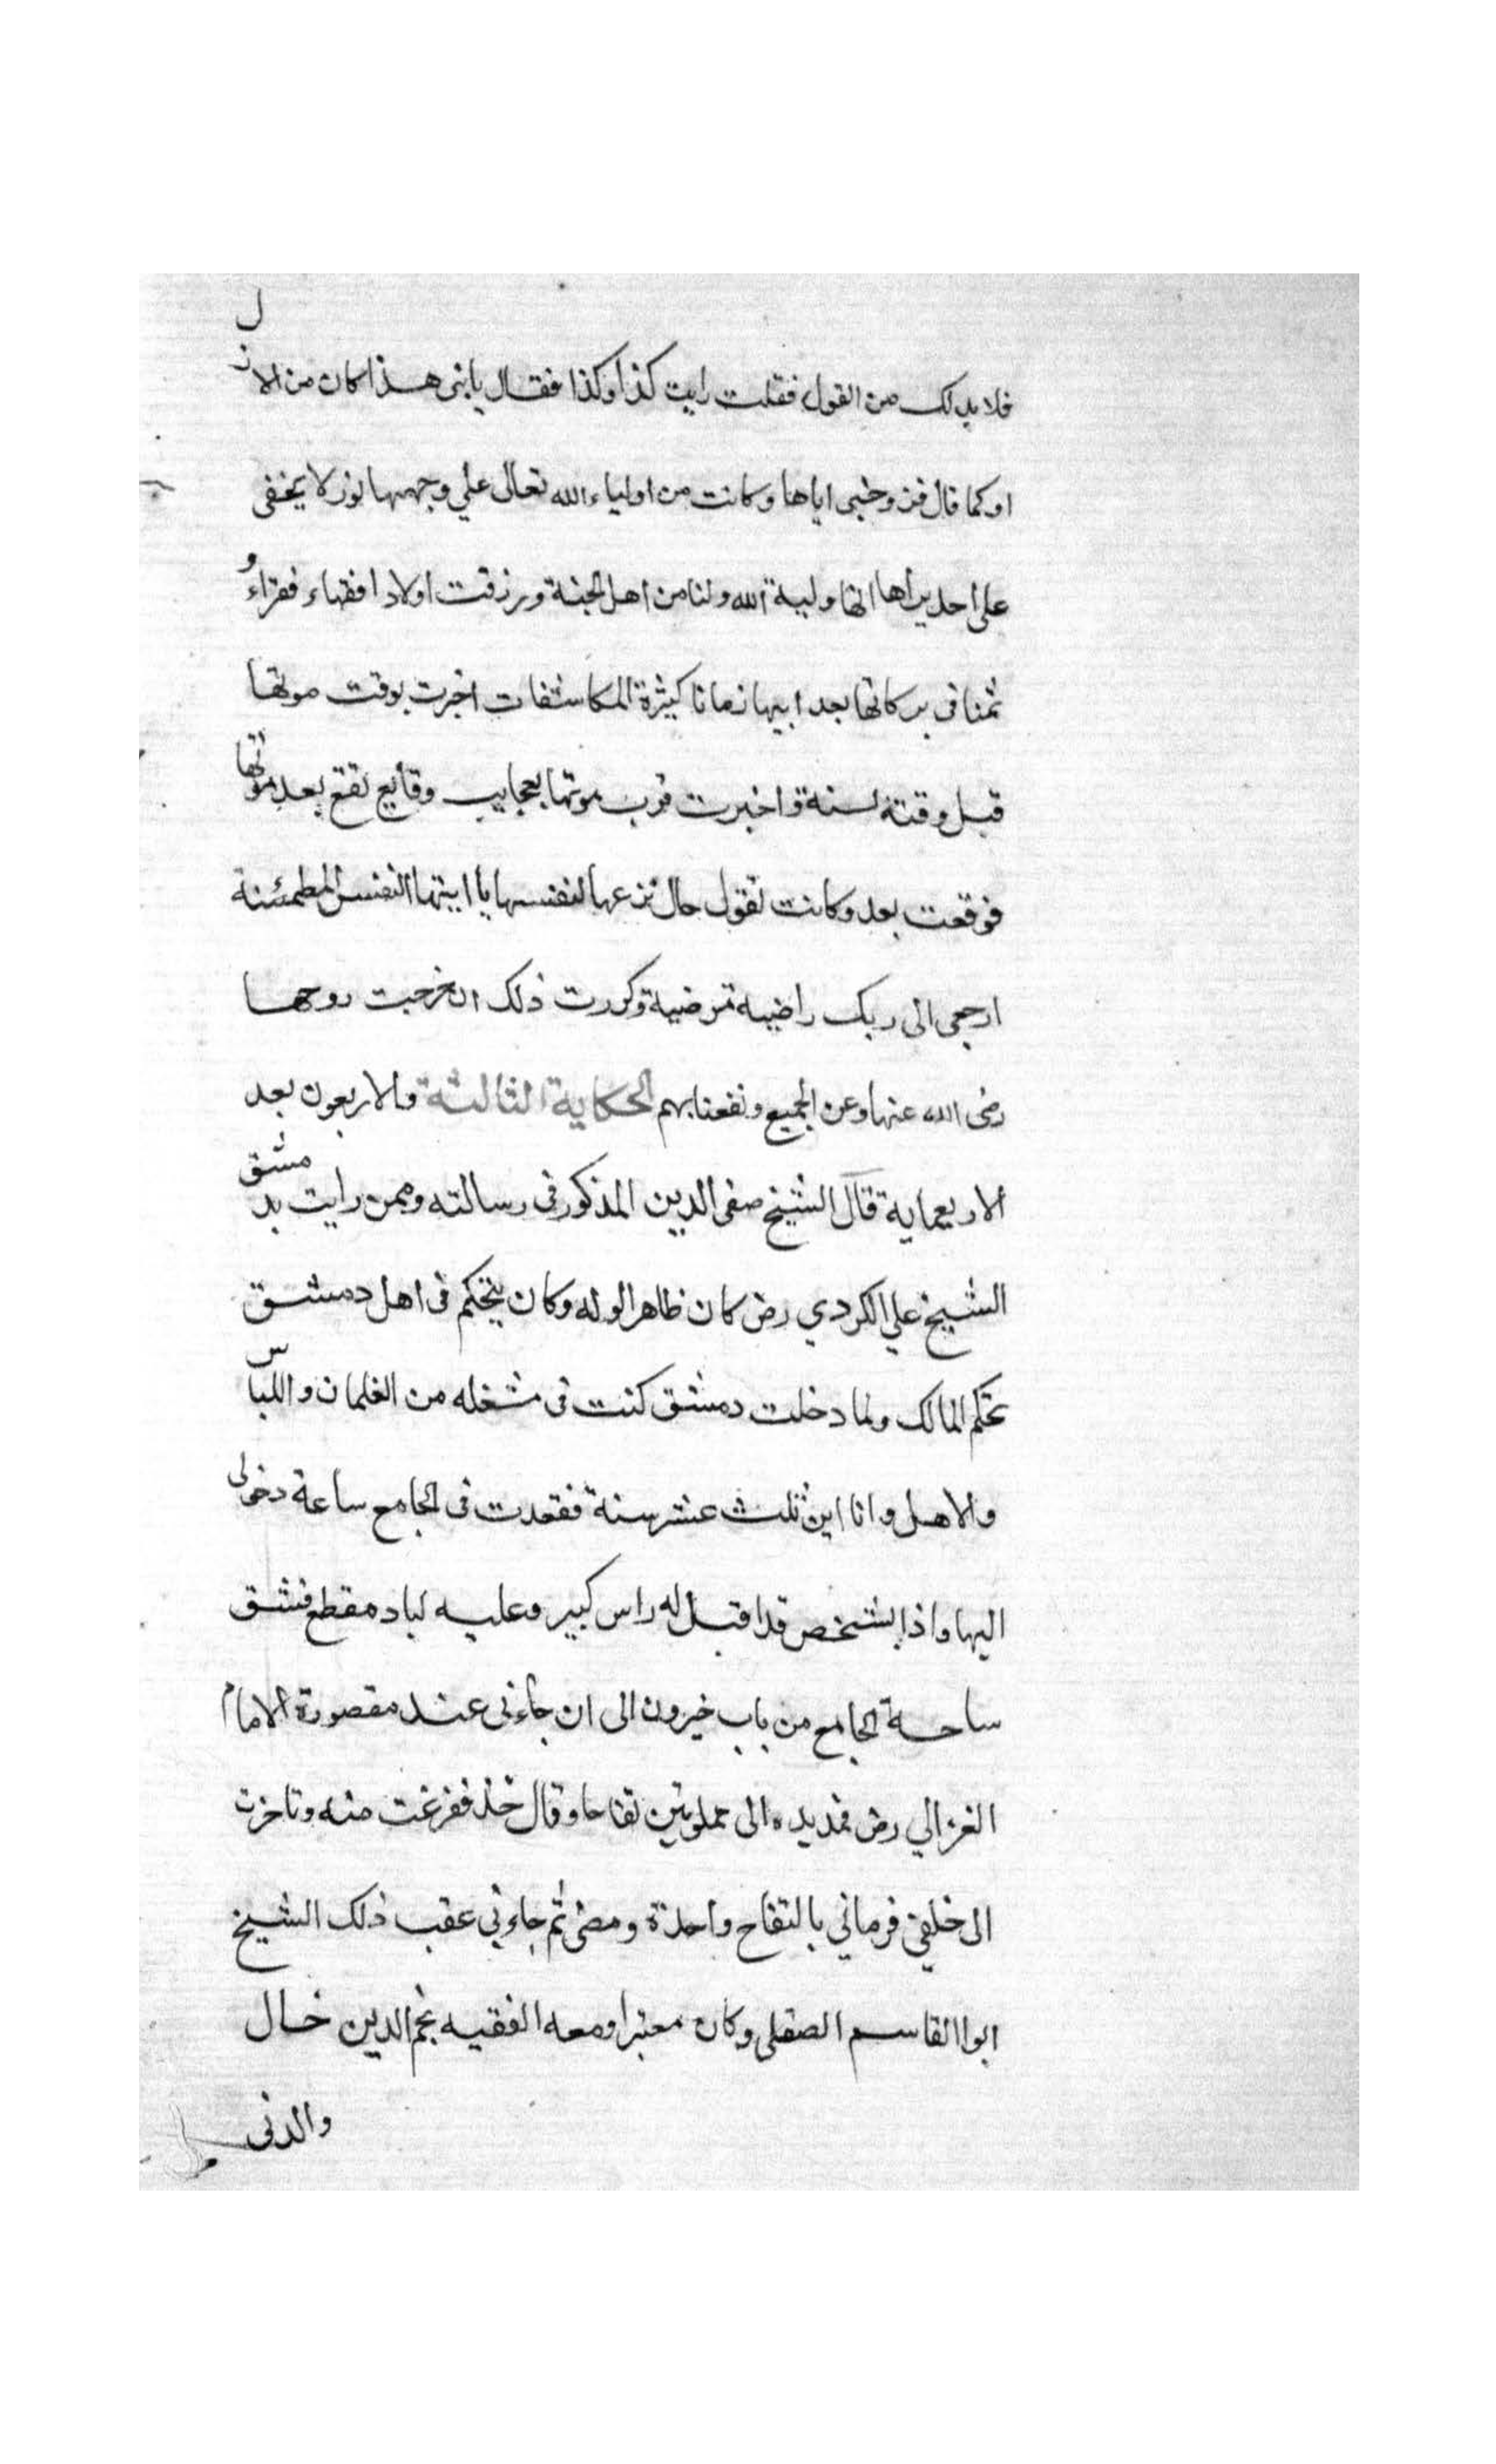 فلا بد لك من القول فقلت رايت كذا وكذا فقال يا بنى هذا كان من الازل
او كما قال فزوجنى اياها وكانت من اولياء الله تعالى علي وجهها نور لا يخفى
على احد يراها انها ولية الله وانا من اهل الجنة ورزقت اولادا فقهاء فقراء و
ثمنا فى بركاتها بعد ابيها زمانا كثيرة المكاشفات اخبرت بوقت موتها
قبل وقته لسنة واخبرت قرب موتها بعجايب وقايع تقع بعد موتها
فوقعت بعد وكانت تقول حال نزعها لنفسها يا ايتها النفس المطمئنة
ارجعى الى ربك راضية مرضية وكررت ذلك الخرجت روحها
رضى الله عنها وعن الجميع ونفعنا بهم الحكاية الثالثة والاربعون بعد
الاربعماية قال الشيخ صفى الدين المذكور فى رسالته وممن رايت بدمشق
الشيخ علي الكردي رض كان ظاهر الوله وكان يتحكم فى اهل دمشق
تحكم المالك ولما دخلت دمشق كنت فى مشغله من الغلمان واللباس
والاهل وانا ابن ثلث عشر سنة فقعدت فى الجامع ساعة دخولى
اليها واذا بشخص قد اقبل له راس كبير وعليه لباد مقطع فشق
ساحة الجامع من باب خيرون الى ان جاءنى عند مقصورة الامام
الغزالي رض فمد يده الى مملوتين تفاحا وقال خذ ففزغت منه وتاخرت
الى خلفى فرماني بالتفاح واحدة ومضى ثم جاءنى عقب ذلك الشيخ
ابوا القاسم الصقلى وكان معتبرا ومعه الفقيه نجم الدين خال
والدتى